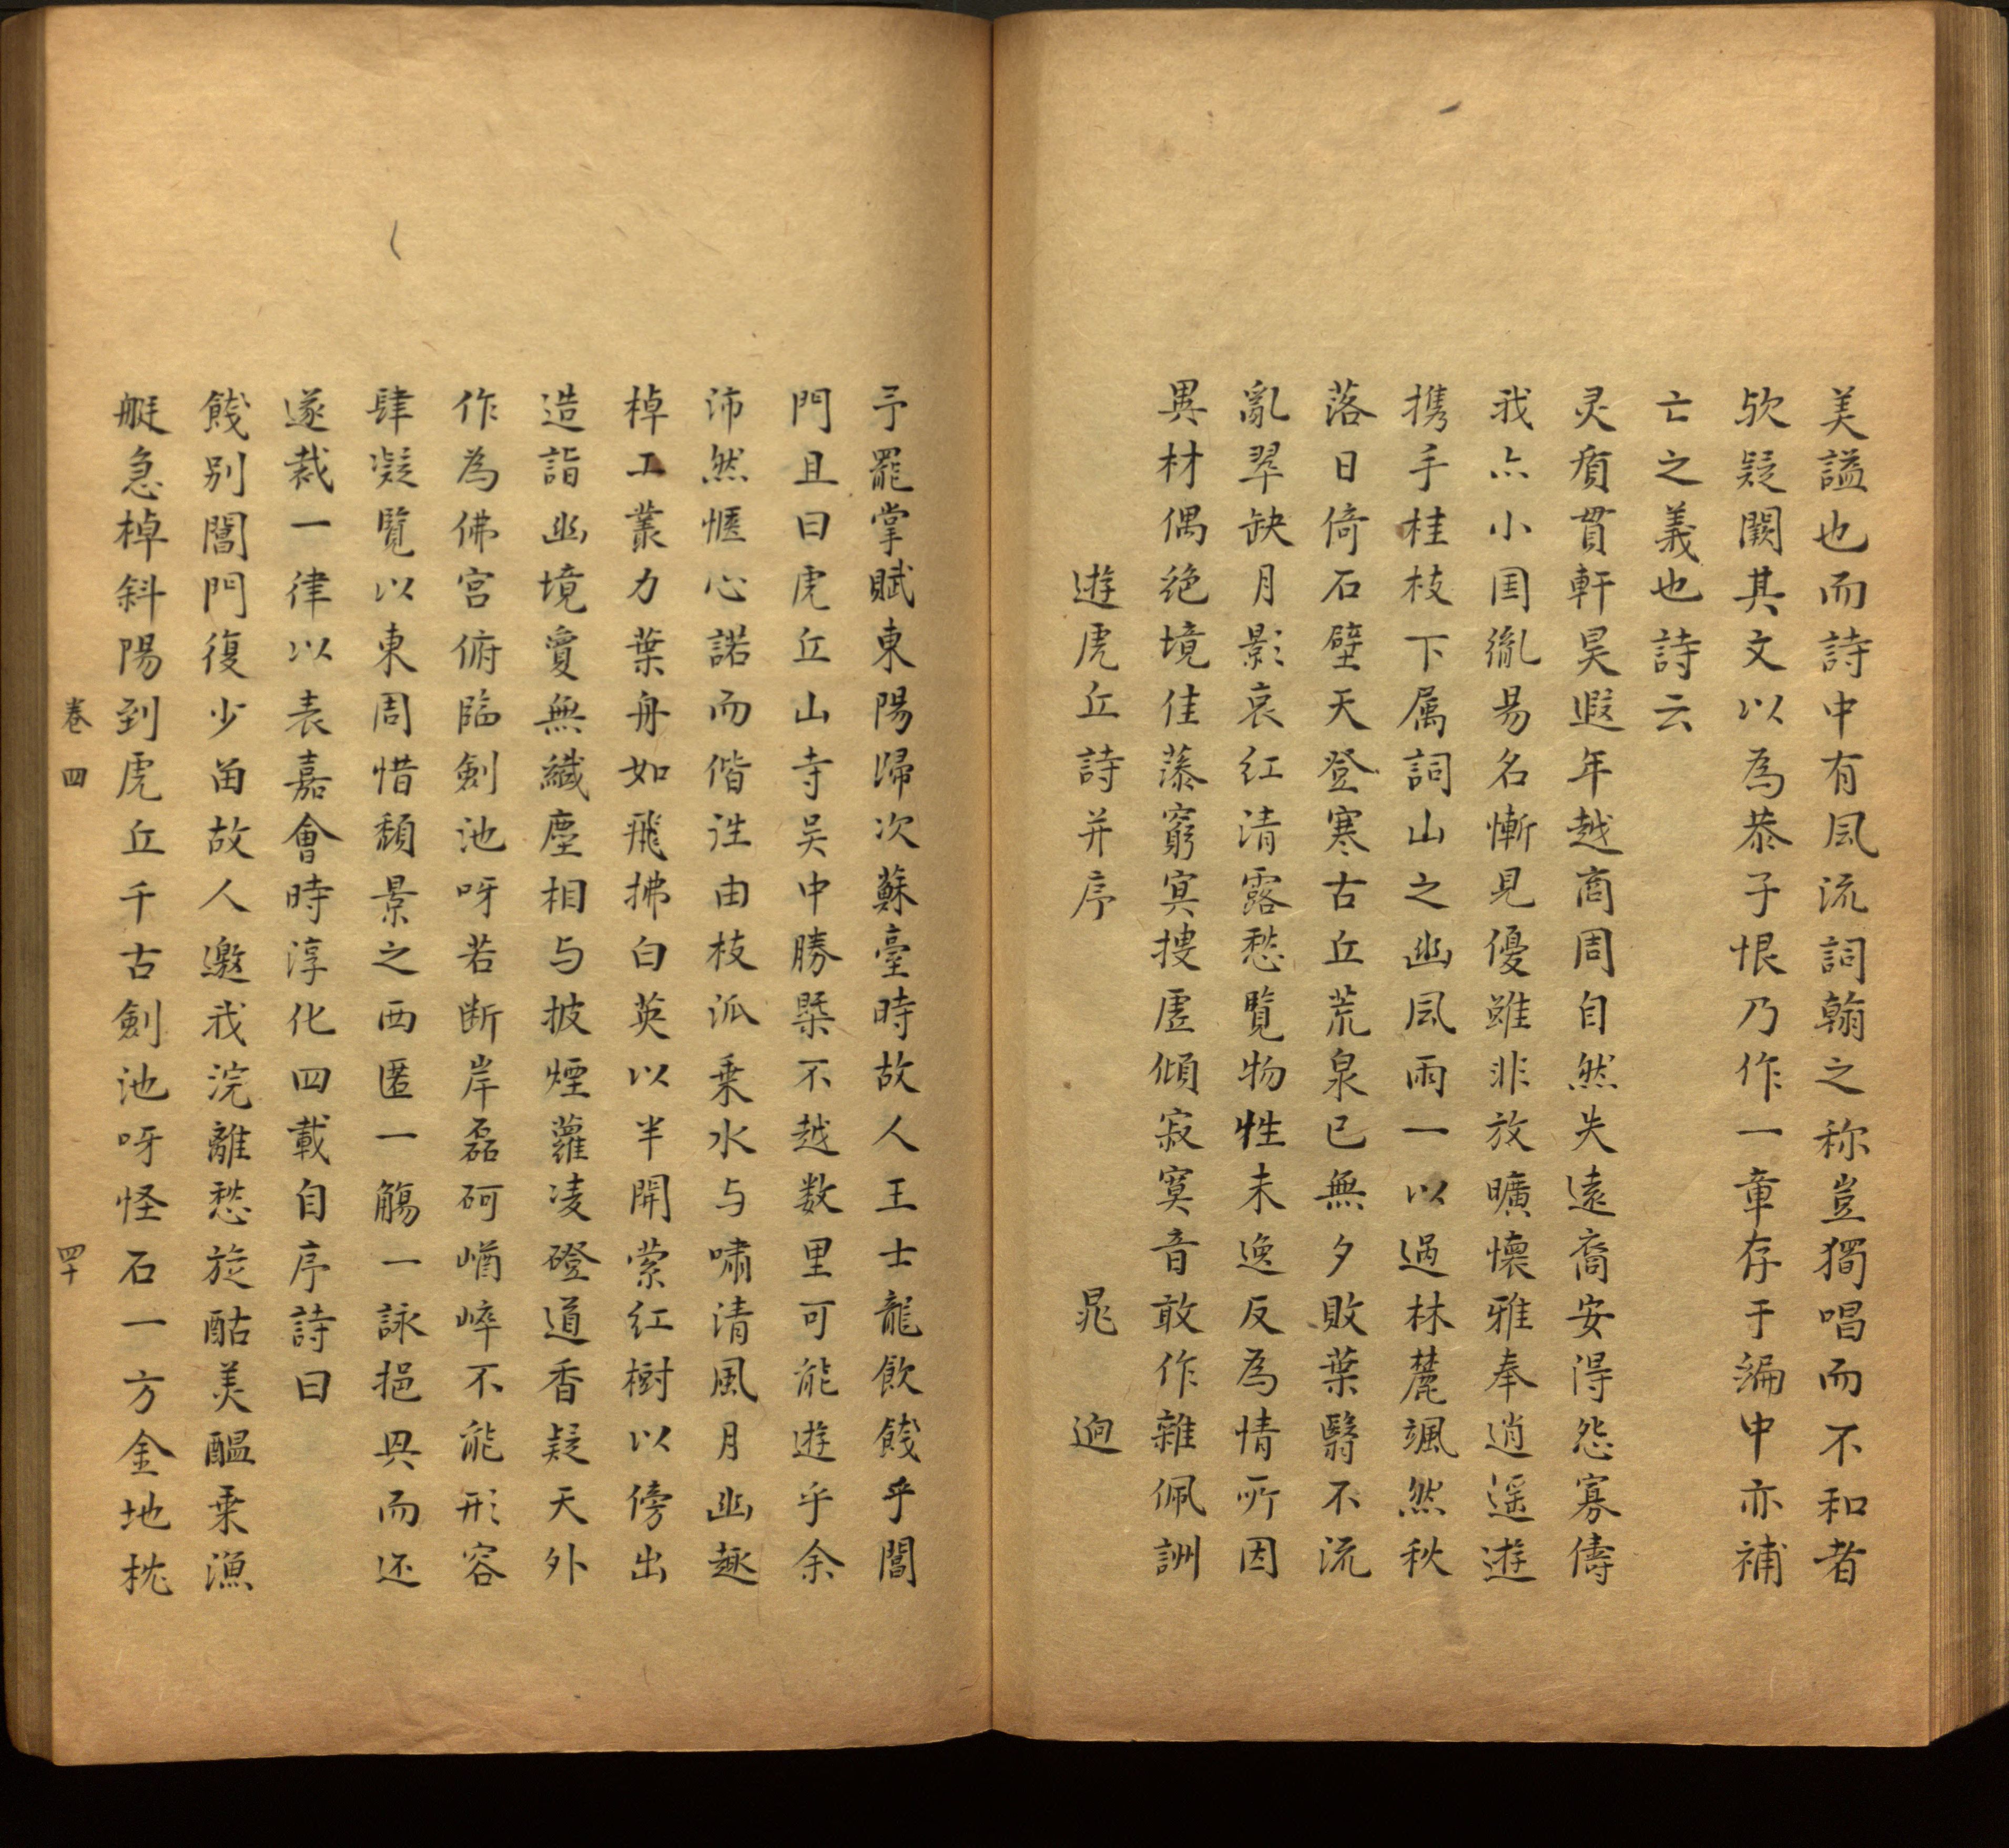 美謚也而詩中有風流詞翰之称豈獨唱而不和者
欤疑闕其文以為恭子恨乃作一章存于編中亦補
亡之義也詩云
灵質貫軒昊遐年越商周自然失遠裔安得怨寡儔
我亦小国胤易名慚見優雖非放曠懷雅奉逍遥遊
携手桂枝下属詞山之幽風雨一以過林麓颯然秋
落日倚石壁天登寒古丘荒泉已無夕敗葉翳不流
亂翠缺月影哀紅清露愁覧物性未逸反為情所因
異材偶絶境佳藻窮冥搜虛傾寂寞音敢作雜佩詶
遊虎丘詩并序 晁迥
予罷掌賦東陽歸次蘇臺時故人王士龍飲餞乎閶
門且曰虎丘山寺吴中勝槩不越数里可能遊乎余
沛然愜心諾而偕迬由枝泒乗水与嘯清風月幽趣
棹工叢力葉舟如飛拂白英以半開縈紅樹以傍出
造詣幽境夐無纎塵相与披煙蘿凌磴道香疑天外
作為佛宮俯臨劍池呀若断岸磊砢崷崒不能形容
肆凝覽以東周惜頽景之西匿一觴一詠挹興而还
遂裁一律以表嘉會時淳化四載自序詩曰
餞别閶門復少畱故人邀我浣離愁旋酤美醞乗漁
艇急棹斜陽到虎丘千古劍池呀怪石一方金地枕
卷四 四十